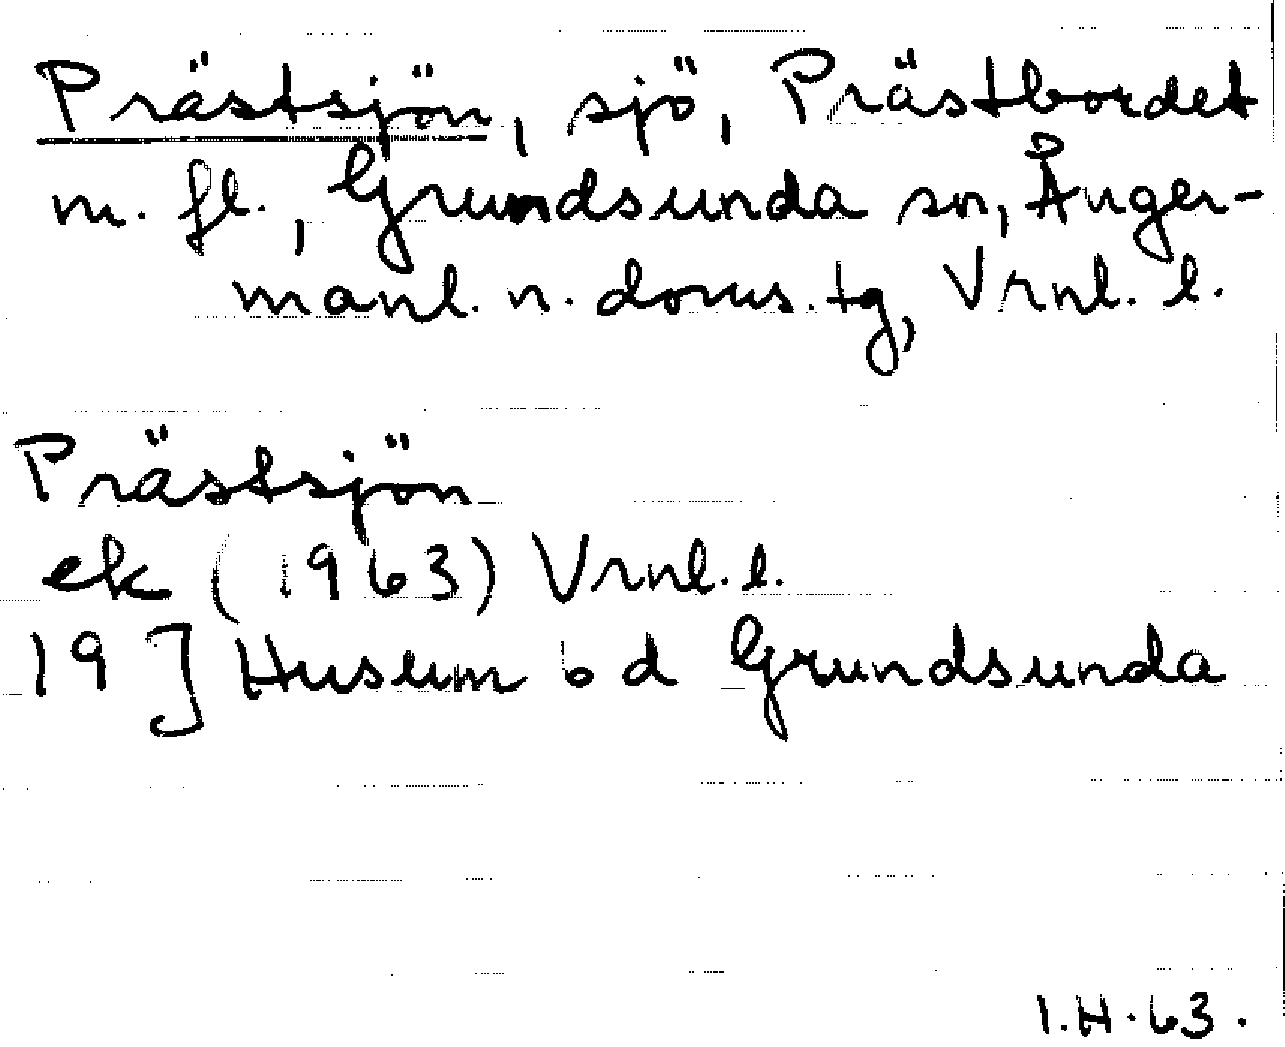 Prästsjön, sjö, Prästbordet
m. fl., Grundsunda sn, Ånger-
manl. n. doms. tg, Vrnl. l.
Prästsjön
ek (1963) Vrnl. l.
19 J Husum 6 d Grundsunda
I.H. 63.